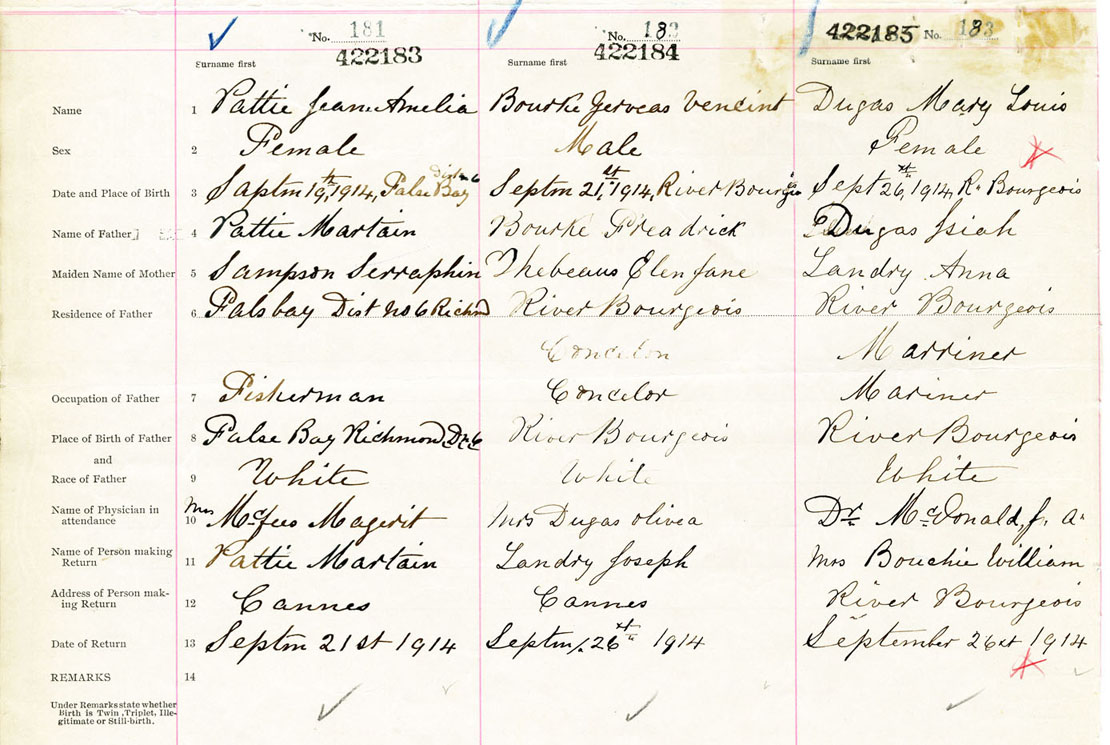 No. 181 No. 182 422185 No. 183
422183 422184
Surname first Surname first Surname first
Name 1 Pattie Jean Amelia Bourke Jerveas Vencint Dugas Mary Louis
Sex 2 Female Male Female
Date and Place of Birth 3 Saptm 19th, 1914, False Bay Septm 21st, 1914, River Bourgeois Sept 26st, 1914, R. Bourgeois
Name of Father 4 Pattie Martain Bourke Freadrick Dugas Isiah
Maiden Name of Mother 5 Sampson Serraphin Thebeaus Elen Jane Landry Anna
Residence of Father 6 Falsbay Dist no 6 Richmd River Bourgeois River Bourgeois
Marriner
Occupation of Father 7 Fisherman Concelor Mariner
Place of Birth of Father 8 False Bay Richmond D. 6 River Bourgeois River Bourgeois
and
Race of Father 9 White White White
Name of Physician in
attendance 10 Mrs McFees Magerit Mrs Dugas Olivea Dr. McDonald, J. A.
Name of Person making
Return 11 Pattie Martain Landry Joseph Mrs Bouchie William
Address of Person mak-
ing Return 12 Cannes Cannes River Bourgeois
Date of Return 13 Septm 21st 1914 Septm. 26st 1914 September 26st 1914
REMARKS 14
Under Remarks state whether
Birth is Twin, Triplet, Ille-
gitimate or Still-birth.